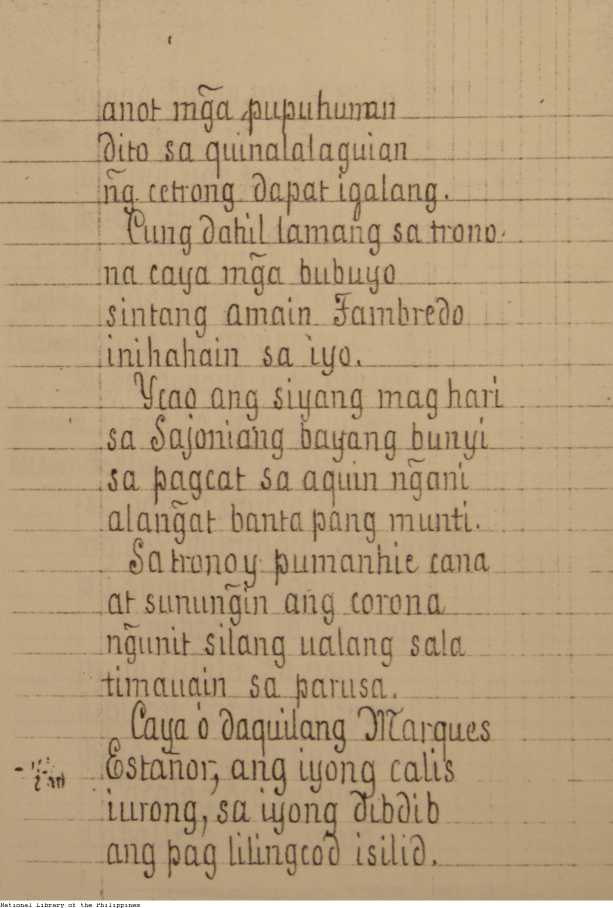 anot mg̃a pupuhunan
dito sa quinalalaguian
ñg cetrong dapat igalang.
Cung dahil lamang sa trono
na caya mg̃a bubuyo
sintang amain Fambredo
inihahain sa iyo.
Ycao ang siyang mag hari
sa Sajoniang bayang bunyi
sa pagcat sa aquin ng̃ani
alang̃at banta pang munti.
Sa tronoy pumanhic cana
at sunung̃in ang corona
ng̃unit silang ualang sala
timauain sa parusa.
Caya ó daquilang Marques
Estañor, ang iyong calis
iurong, sa iyong dibdib
ang pag lilingcod isilid.
National Library of the Philippines